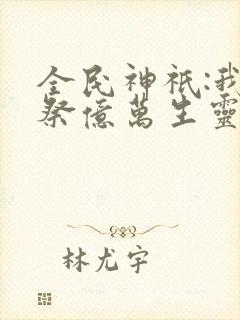 全民神祇:我
祭億萬生靈
林尤宇